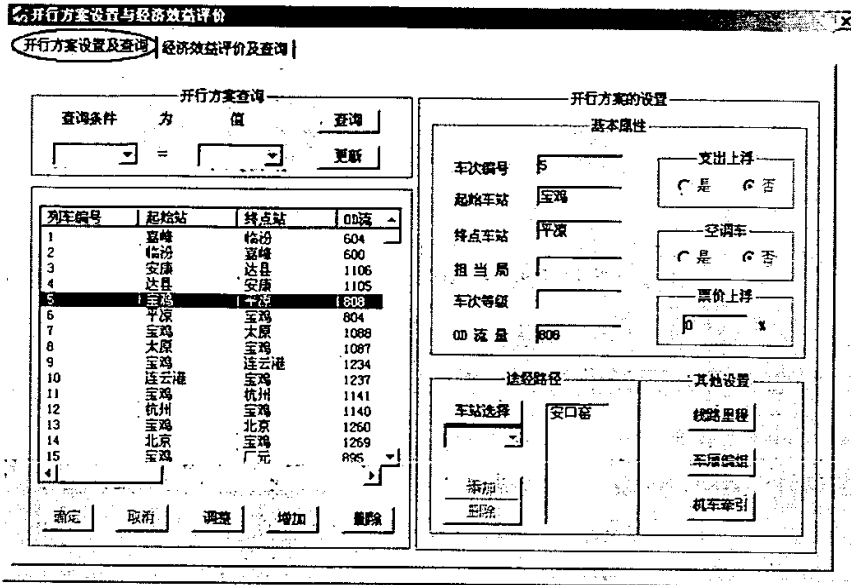 开行方案设置与经济效益评价
开行方案设置及查询 经济效益评价及查询
开行方案查询
查询条件 为 值 查询
= 更新
列车编号 起始站 终点站 OD流
1 嘉峰 临汾 604
2 临汾 嘉峰 600
3 安康 达县 1106
4 达县 安康 1105
5 宝鸡 平凉 808
6 平凉 宝鸡 804
7 宝鸡 太原 1088
8 太原 宝鸡 1087
9 宝鸡 连云港 1234
10 连云港 宝鸡 1237
11 宝鸡 杭州 1141
12 杭州 宝鸡 1140
13 宝鸡 北京 1260
14 北京 宝鸡 1269
15 宝鸡 广元 895
确定 取消 调整 增加 删除
开行方案的设置
基本属性
车次编号 5
起始车站 宝鸡
终点车站 平凉
担当局
车次等级
OD流量 808
支出上浮
是 否
空调车
是 否
票价上浮
0 %
途经路径
车站选择 安口窑
添加
删除
其他设置
线路里程
车底编组
机车牵引